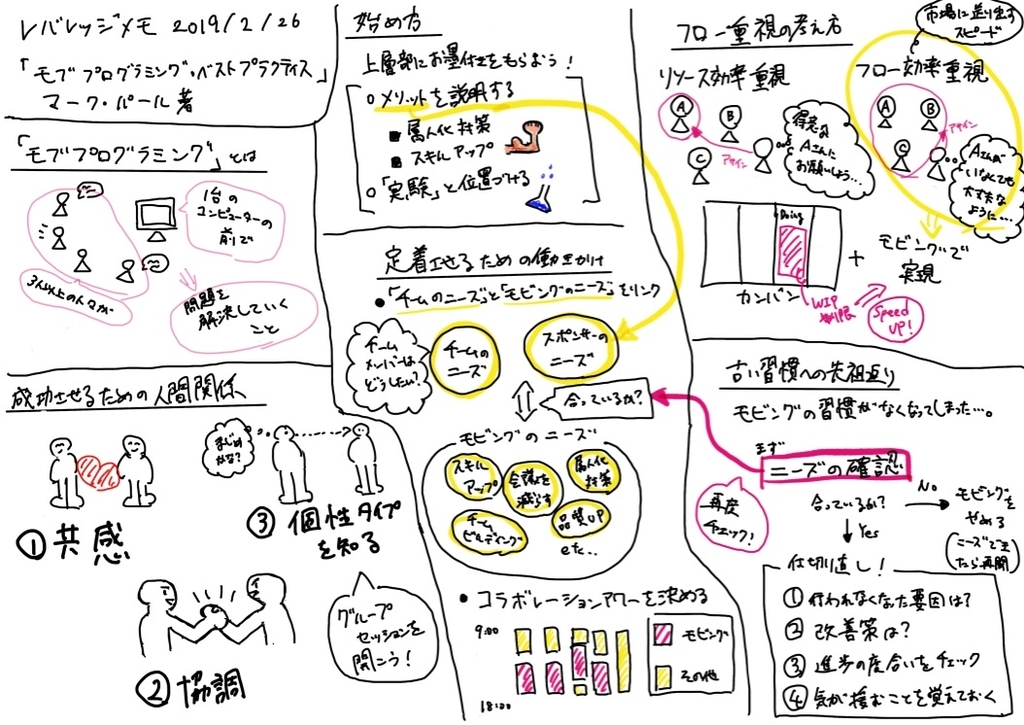 レバレッジメモ 2019/2/26
「モブプログラミング・ベストプラクティス」
マーク・パール著
「モブプログラミング」とは
1台の
コンピューターの
前で
3人以上の人々が
問題を
解決していく
こと
成功させるための人間関係
① 共感
まじめ
かな?
③ 個性タイプ
を知る
② 協調
グループ
セッションを
開こう!
始め方
上層部にお墨付きをもらおう!
○メリットを説明する
■ 属人化対策
■ スキルアップ
○「実験」と位置づける
定着させるための働きかけ
●「チームのニーズ」と「モビングのニーズ」をリンク
チーム
メンバーは
どうしたい?
チームの
ニーズ
スポンサーの
ニーズ
合っているか?
モビングのニーズ
スキル
アップ
会議を
減らす
属人化
対策
チーム
ビルディング
品質UP
etc...
● コラボレーションアワーを決める
9:00
18:00
モビング
その他
フロー重視の考え方
市場に送り出す
スピード
リソース効率重視
A
B
C
アサイン
得意な
Aさんに
お願いしよう...
フロー効率重視
A
B
C
アサイン
Aさんが
いなくても
大丈夫な
ように...
Doing
カンバン
+
モビングで
実現
WIP
制限
Speed
UP!
古い習慣への先祖返り
モビングの習慣がなくなってしまった...。
まず
ニーズの確認
再度
チェック!
合っているか?
No
モビングを
やめる
(ニーズでき
たら再開)
Yes
仕切り直し!
① 行われなくなった要因は?
② 改善策は?
③ 進歩の度合いをチェック
④ 気が緩むことを覚えておく